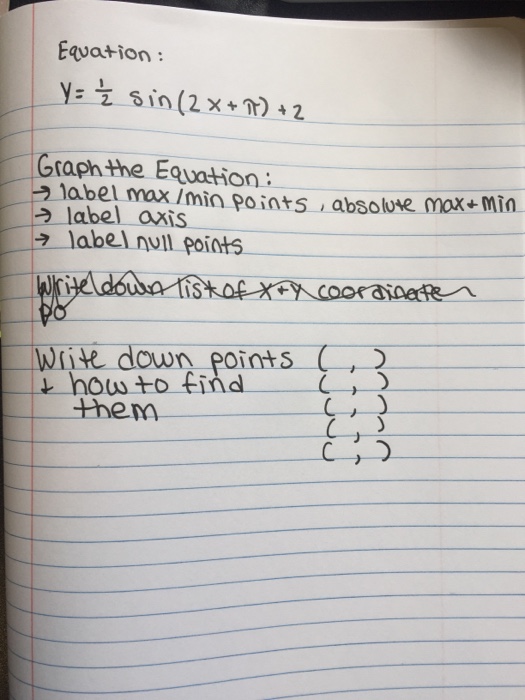 Equation:
y = 1/2 sin(2x+π) +2
Graph the Equation:
→ label max/min points, absolute max + min
→ label axis
→ label null points
Write down list of x+y coordinate
po
Write down points ( , )
+ how to find ( , )
them ( , )
( , )
( , )